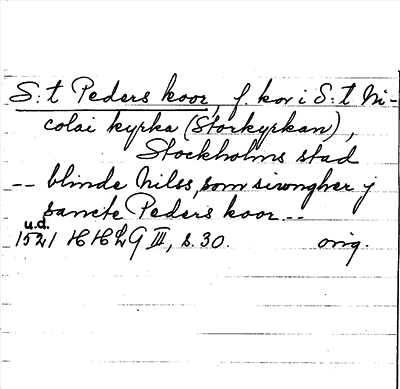 S:t Peders koor, f. kor i S:t Ni-
colai kyrka (Storkyrkan),
Stockholms stad
-- blinde Nilss, som siwngher j
sancte Peders koor --
u.d.
1521 HHLG III, s. 30. orig.